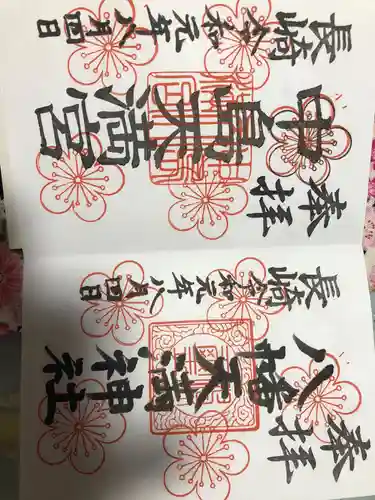 奉拝
八幡天満神社
長崎 令和元年八月四日
奉拝
中島天満宮
長崎 令和元年八月四日